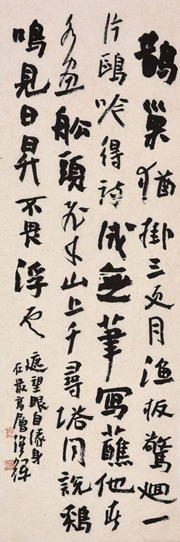 鵲巢猶掛三更月漁板驚迴一
片鷗吟得詩成無筆寫蘸他春
水畫船頭飛來山上千尋塔聞說鷄
鳴見日昇不畏浮雲
遮望眼自緣身
在最高層